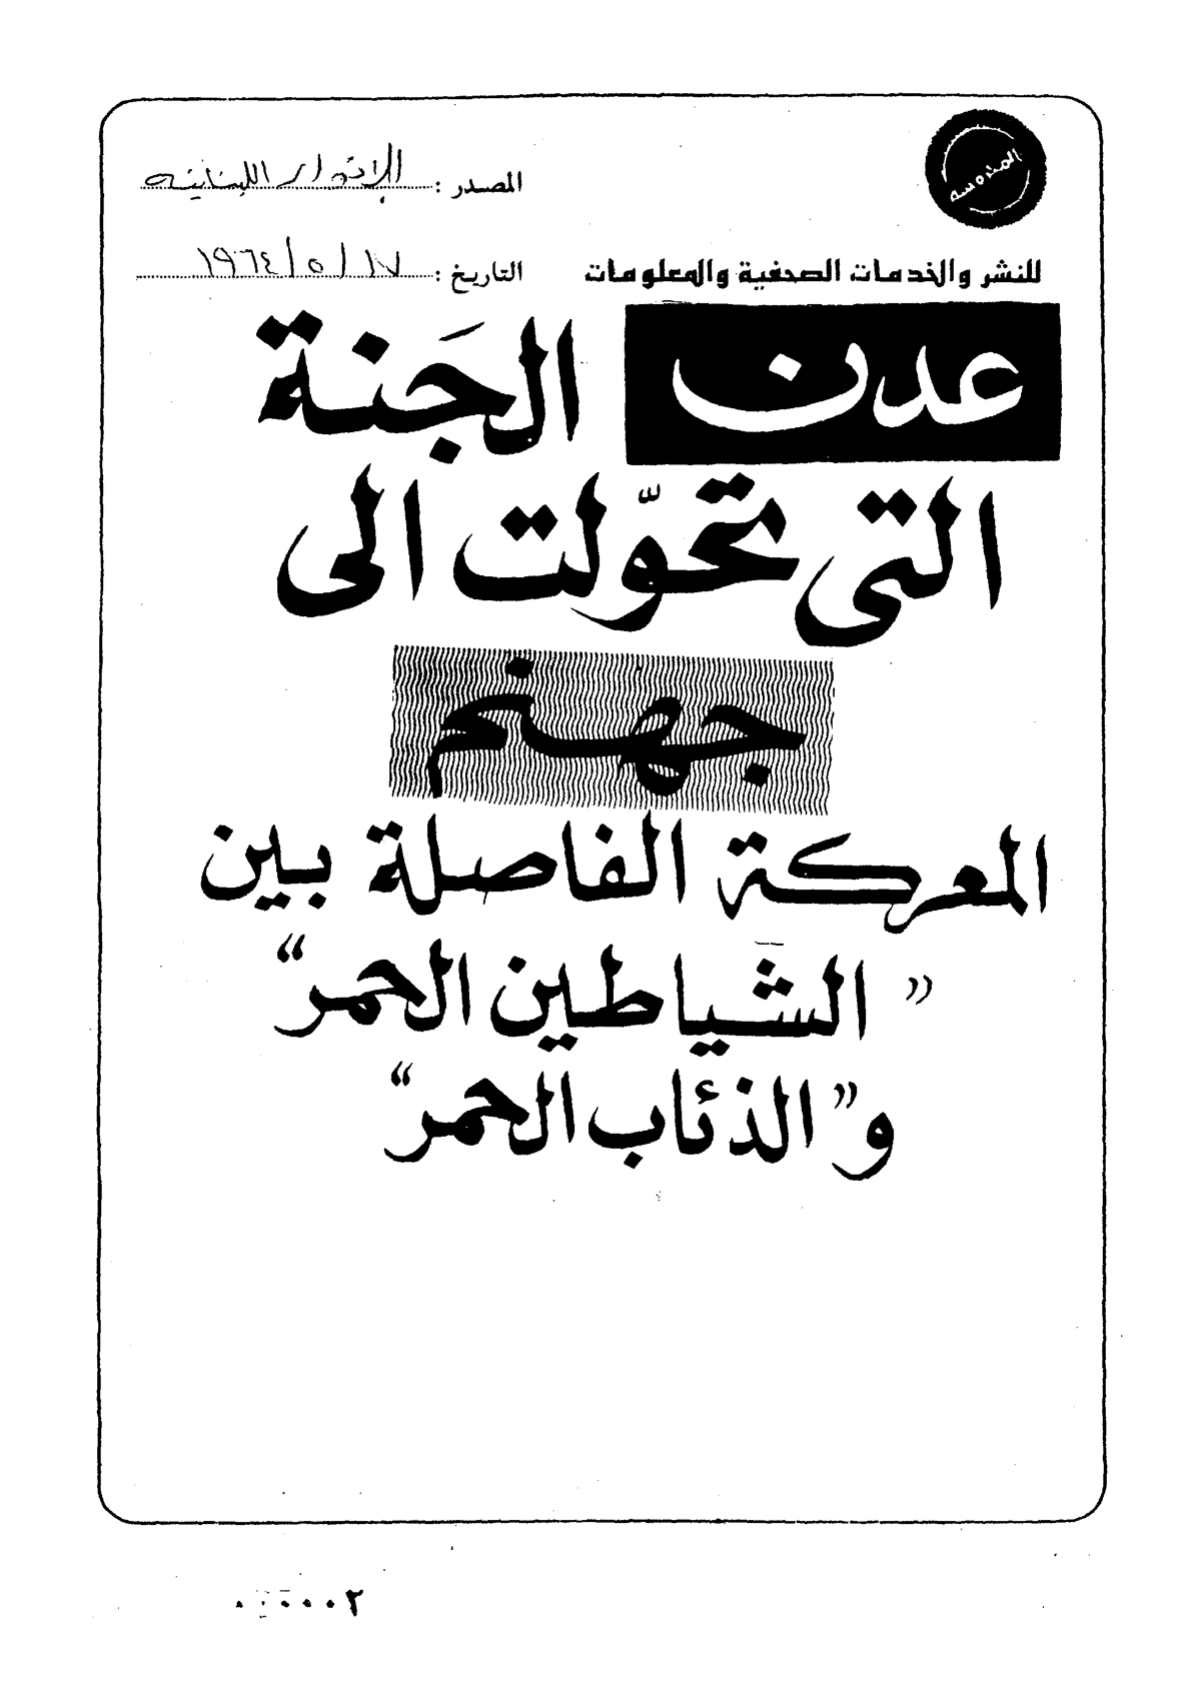 المحروسة
المصدر : الانوار اللبنانية
للنشر والخدمات الصحفية والمعلومات
التاريخ : ١٧ / ٥ / ١٩٦٤
عدن الجَنة
التى تحوّلت الى
جهنم
المعركة الفاصلة بين
" الشياطين الحمر "
و " الذئاب الحمر "